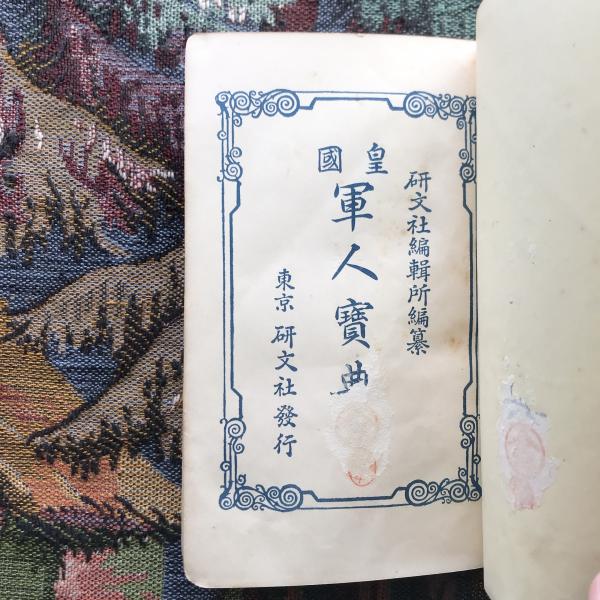 研文社編輯所編纂
皇國
軍人寶典
東京 研文社發行